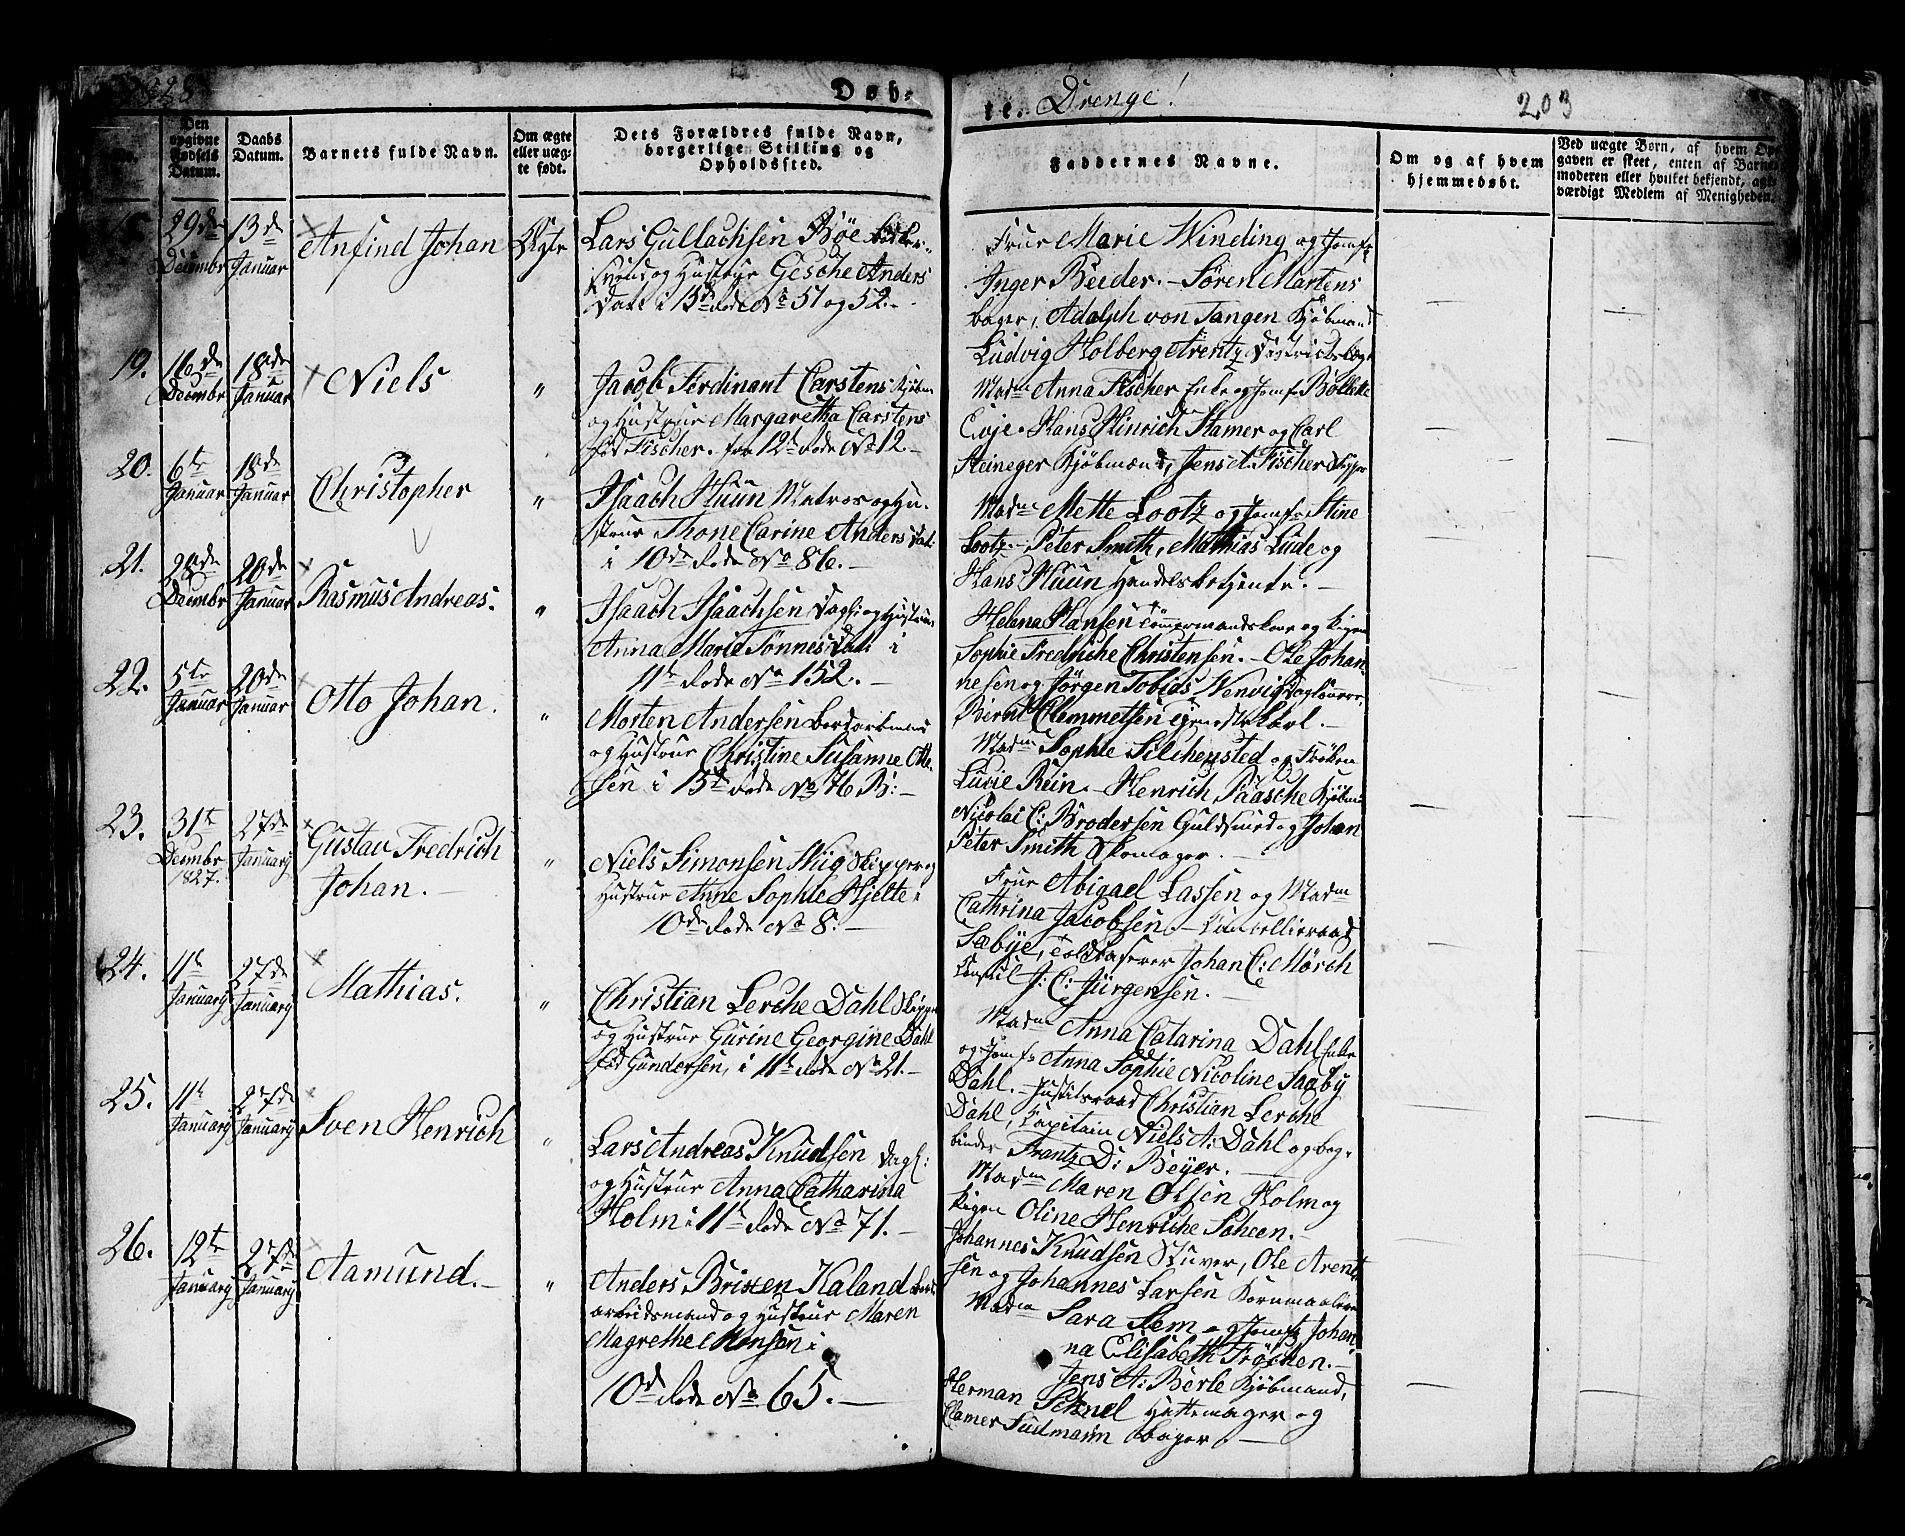 1828
Døb-
te. Drenge!
203
No.
Den opgivne Fødsels Datum.
Daabs Datum.
Barnets fulde Navn.
Om ægte eller uæg-te født.
Dets Forældres fulde Navn, borgerlige Stilling og Opholdssted.
Faddernes Navne.
Om og af hvem hjemmedøbt.
Ved uægte Børn, af hvem Op-
gaven er skeet, enten af Barne-
moderen eller hvilket bekjendt, agt-
værdigt Medlem af Menigheden.
29de Decembr
13de Januar
Anfind Johan
Ægte
Lars Gullachsen Bøe
og Hustrue Gesche Anders
Datt i 15de Rode No 51 og 52.-
Frue Marie Winding og Jomfr
Inger Beider.- Sören Martens
bager, Adolph von Tangen Kjöbmand
Ludvig Holberg Arentz
19.
16de Decembr
18de Januar
Niels
"
Jacob Ferdinant Carstens Kjöbm
og Hustrue Margaretha Carstens
fød Fischer. 12te Rode No 12-
Madm Anna Fischer Enke og Jomfr Bollette
Evje. Hans Hinrich Hamer og Carl
Steineger Kjöbmænd, Jens A. Fischer Skipper
20.
6te Januar
18de Januar
Christopher
"
Isaach Huun Matros og Hu-
strue Thone Carine Anders Datt
i 10de Rode No 86.-
Madm Mette Lootz og Jomfr Stine
Lootz.- Peter Smith, Mathias Lude og
Hans Huun Handelsbetjente.-
21.
28de Decembr
20de Januar
Rasmus Andreas.
"
Isaach Isaachsen Dagl: og Hustrue
Anna Maria Tönnes Datt i
11te Rode No 152.-
Helena Hansen Tömmermandskone og Pigen
Sophie Fredriche Christensen.- Ole Johan-
nesen og Jörgen Tobias Wenvig Daglönnere,
Bernt Clemmetsen Tjenestekarl.-
22.
5te Januar
20de Januar
Otto Johan.
"
Morten Andersen Bordarbmd
og Hustrue Christine Susanne Otte-
sen i 15de Rode No 76 B:-
Madm Sophie Silchensted og Fröken
Lucie Rein.- Henrich Paasche Kjöbm
Nicolai C: Brodersen Guldsmed og Johan
Peter Smith Skomager.-
23.
31te Decembr 1827.
27de January
Gustav Fredrich
Johan.-
"
Niels Simonsen Stiig Skipper og
Hustrue Anne Sophie Hjelte i
10de Rode No 8.-
Frue Abigael Lassen og Madm
Cathrina Jacobsen.- Cancellieraad
Sabye, Toldkaserer Johan C: Mörch
Consul J: C: Jürgensen.-
24.
11te January
27de January
Mathias.
"
Christian Lerche Dahl Skipper
og Hustrue Gurine Georgine Dahl
fød Gundersen, i 11te Rode No 21.-
Madm Anna Catarina Dahl Enke
og Jomfr Anna Sophie Nicoline Saaby
Dahl.- Justitsraad Christian Lerche
Dahl, Capitain Niels A: Dahl og bog-
binder Frantz D: Beyer.-
25.
11te January
27de January
Sven Henrich
"
Lars Andreas Knudsen Dagl:
og Hustrue Anna Catharina
Holm i 11te Rode No 71.-
Madm Maren Olsen Holm og
Pigen Oline Henriche Scheen.-
Johannes Knudsen Stuver, Ole Arent-
sen og Johannes Larsen Kornmaalere
26.
12te January
27de January
Aamund.-
"
Anders Brixen Kaland Bord-
arbeidsmand og Hustrue Maren
Magrethe Monsen i
10de Rode No 65.-
Madm Sara Sem og Jomfr Johan-
na Elisabeth Fröchen.-
Jens A: Berle Kjöbmand,
Herman Schnel Hattemager og
Clamer Sudmann Bager.-